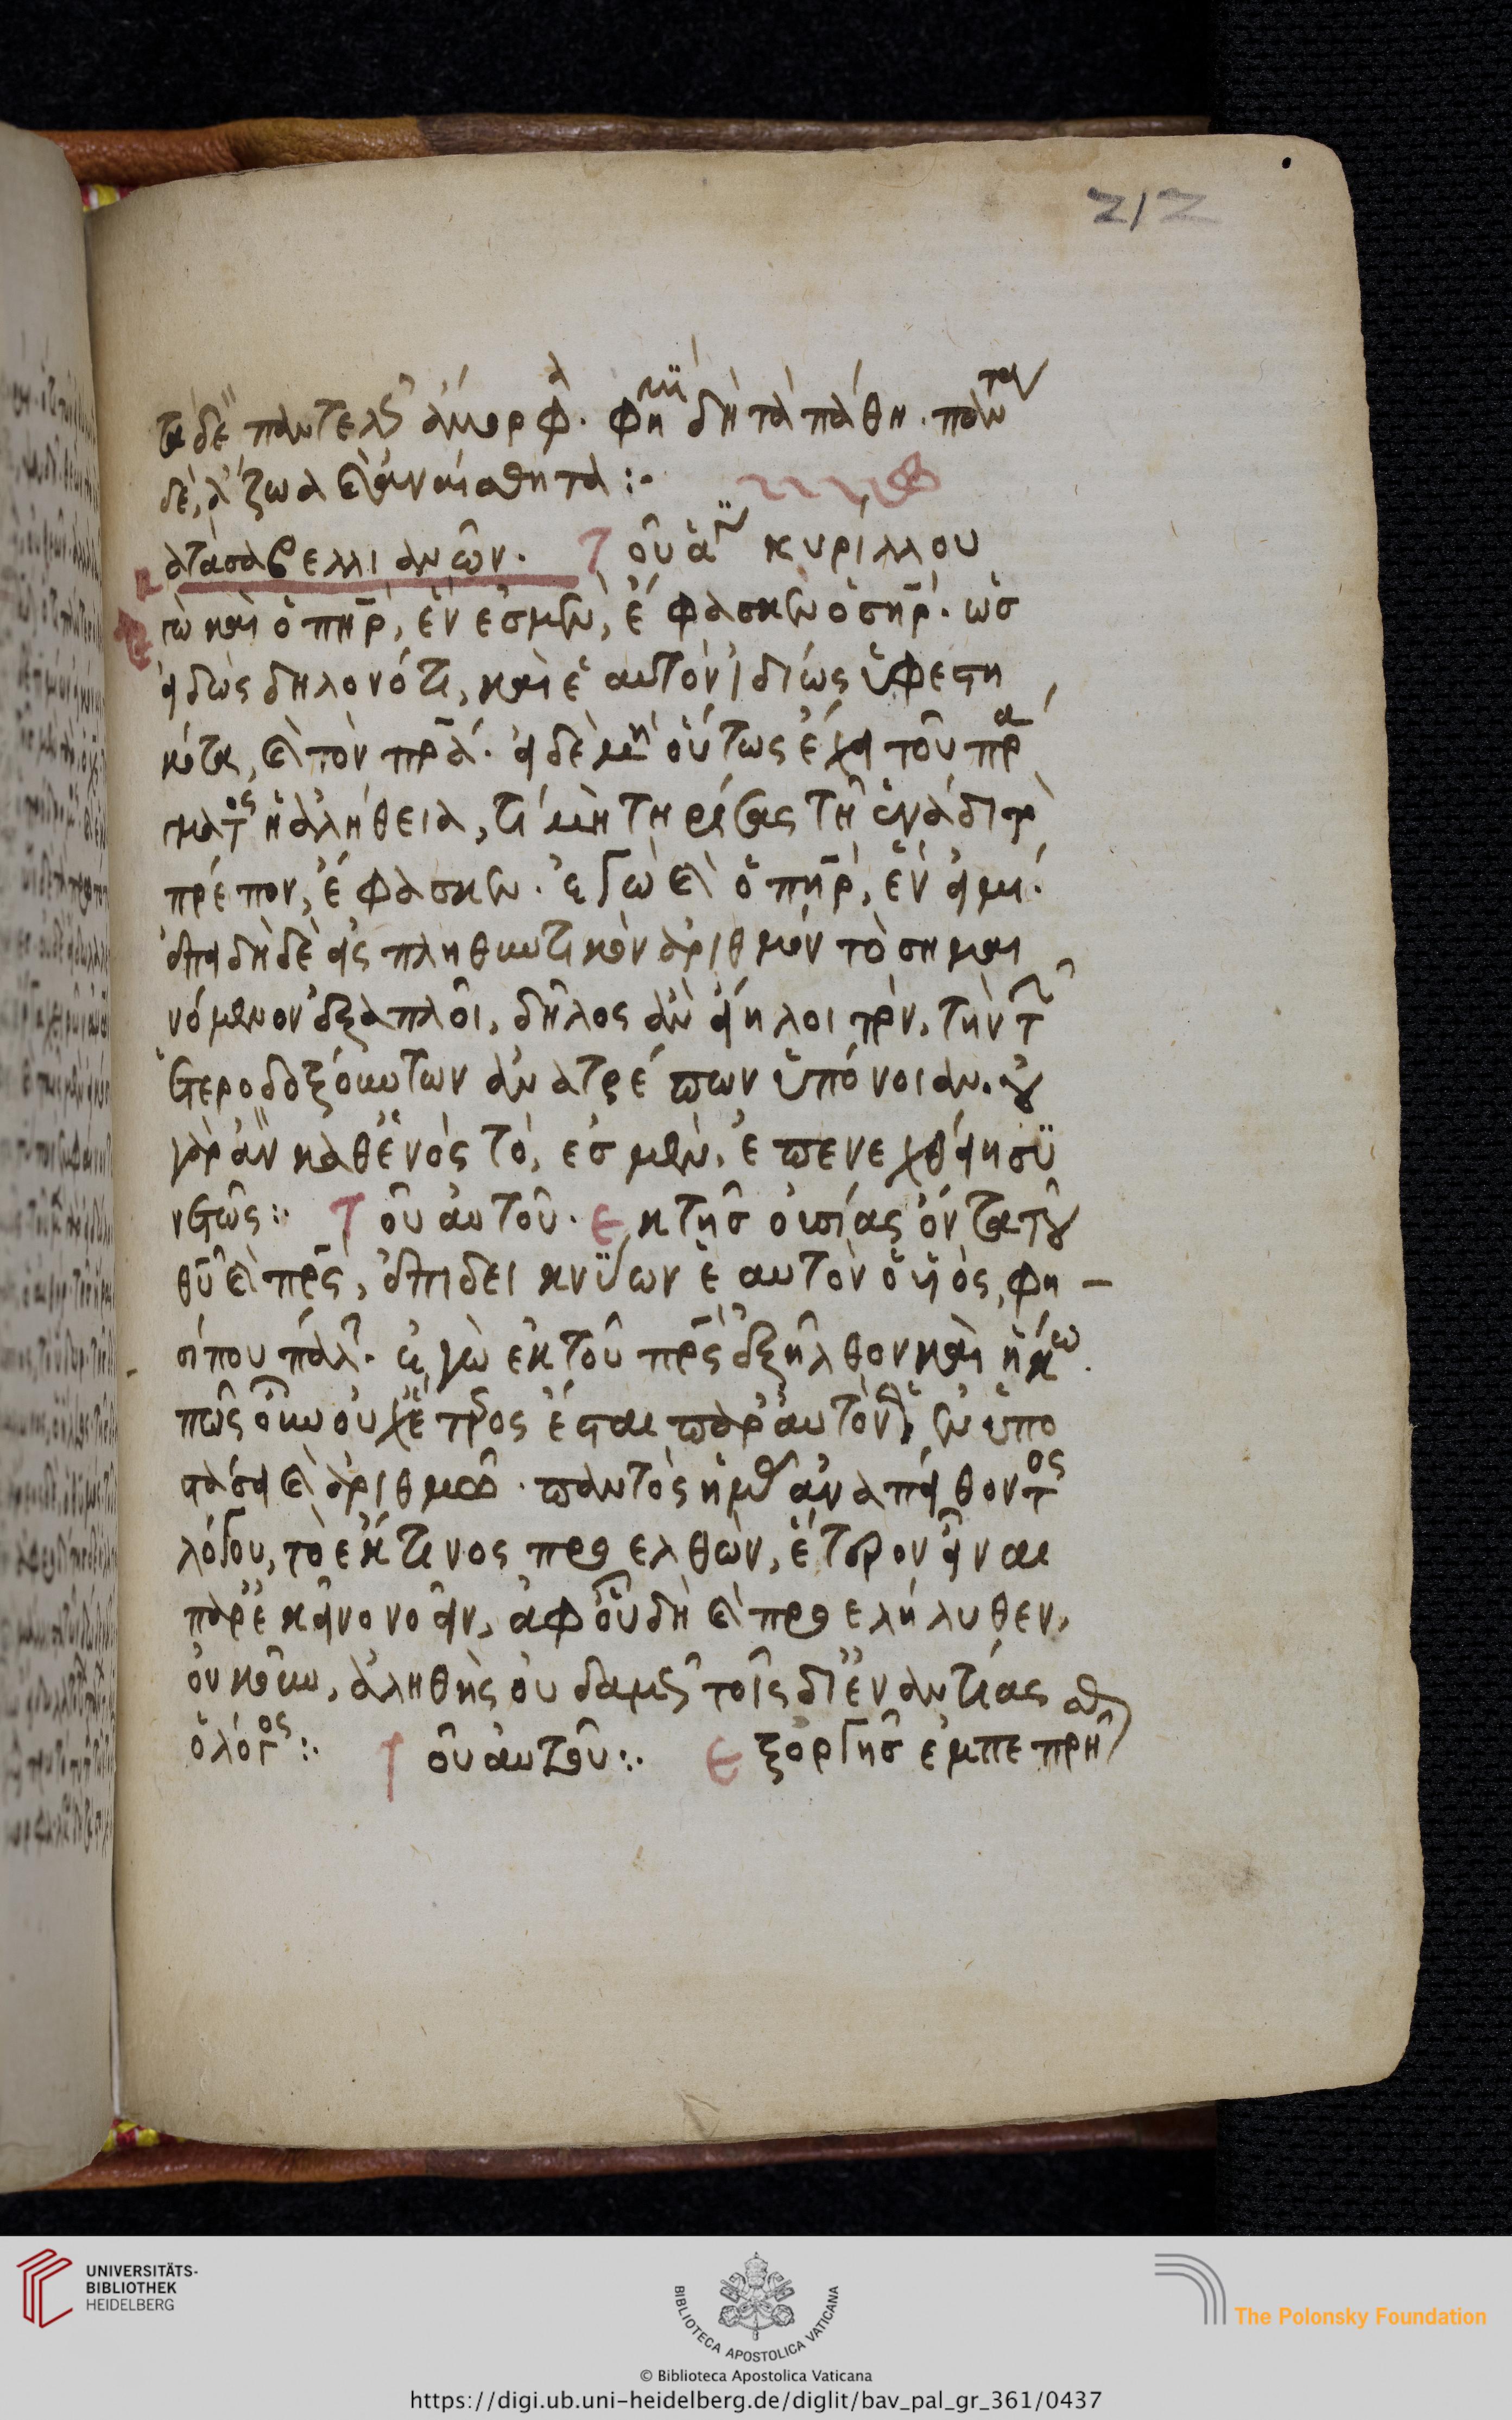 212
τα δὲ παντελ ἄμορφ. φη δὴ τὰ πάθη. παν
δὲ, ἄζωα καὶ ἀναίσθητα :·
ατὰ σαβελλιανῶν. Τοῦ ἁ κυρίλλου
Ἐγὼ καὶ ὁ πηρ, ἕν ἐσμεν, ἔφασκεν ὁ σηρ. ὡσ
εἰδὼς δηλονότι, καὶ ἑαυτὸν ἰδίως ὑφεστη
κότα, καὶ τὸν πρα. εἰ δὲ μὴ οὕτως ἔχει τοῦ πρα
ματος ἡ ἀλήθεια, τί μὴ τηρήσας τῆ ἑνάδι τὸ
πρέπον, ἔφασκεν. ἐγὼ καὶ ὁ πηρ, ἕν εἰμι.
ἐπειδὴ δὲ εἰς πληθυντικὸν ἀριθμὸν τὸ σημαι
νόμενον ἐξαπλοῖ, δῆλος ἂν εἴη λοιπὸν, τὴν τ
ἑτεροδοξούντων ἀνατρέπων ὑπόνοιαν. οὐ
γὰρ ἂν καθενὸς τὸ, ἐσμὲν, ἐπενεχθείη συ
νετῶς :· Τοῦ αὐτοῦ. Ἐκ τῆσ οὐσίας ὄντα τοῦ
θυ καὶ πρς, ἐπιδεικνύων ἑαυτὸν ὁ υἱὸς, φη –
σί που πάλ. ἐγὼ ἐκ τοῦ πρς ἐξῆλθον καὶ ἥκω.
πῶς οὖν οὐχ ἕτερος ἔσται παρ αὐτὸν, ἐν ὑπο
στάσει καὶ ἀριθμῶ. παντὸς ἡμᾶς ἀναπείθοντος
λόγου, τὸ ἔκ τινος προελθὸν, ἕτερον εἶναι
παρ ἐκεῖνο νοεῖν, ἀφ οὗ δὴ καὶ προελήλυθεν,
οὐκοῦν, ἀληθὴς οὐδαμ τοῖς διεναντίας
ὁ λόγος :· Τοῦ αὐτοῦ :· Ἐξ ὀργῆσ ἐμπεπρη
UNIVERSITÄTS-
BIBLIOTHEK
HEIDELBERG
BIBLIOTECA APOSTOLICA VATICANA
The Polonsky Foundation
© Biblioteca Apostolica Vaticana
https://digi.ub.uni-heidelberg.de/diglit/bav_pal_gr_361/0437